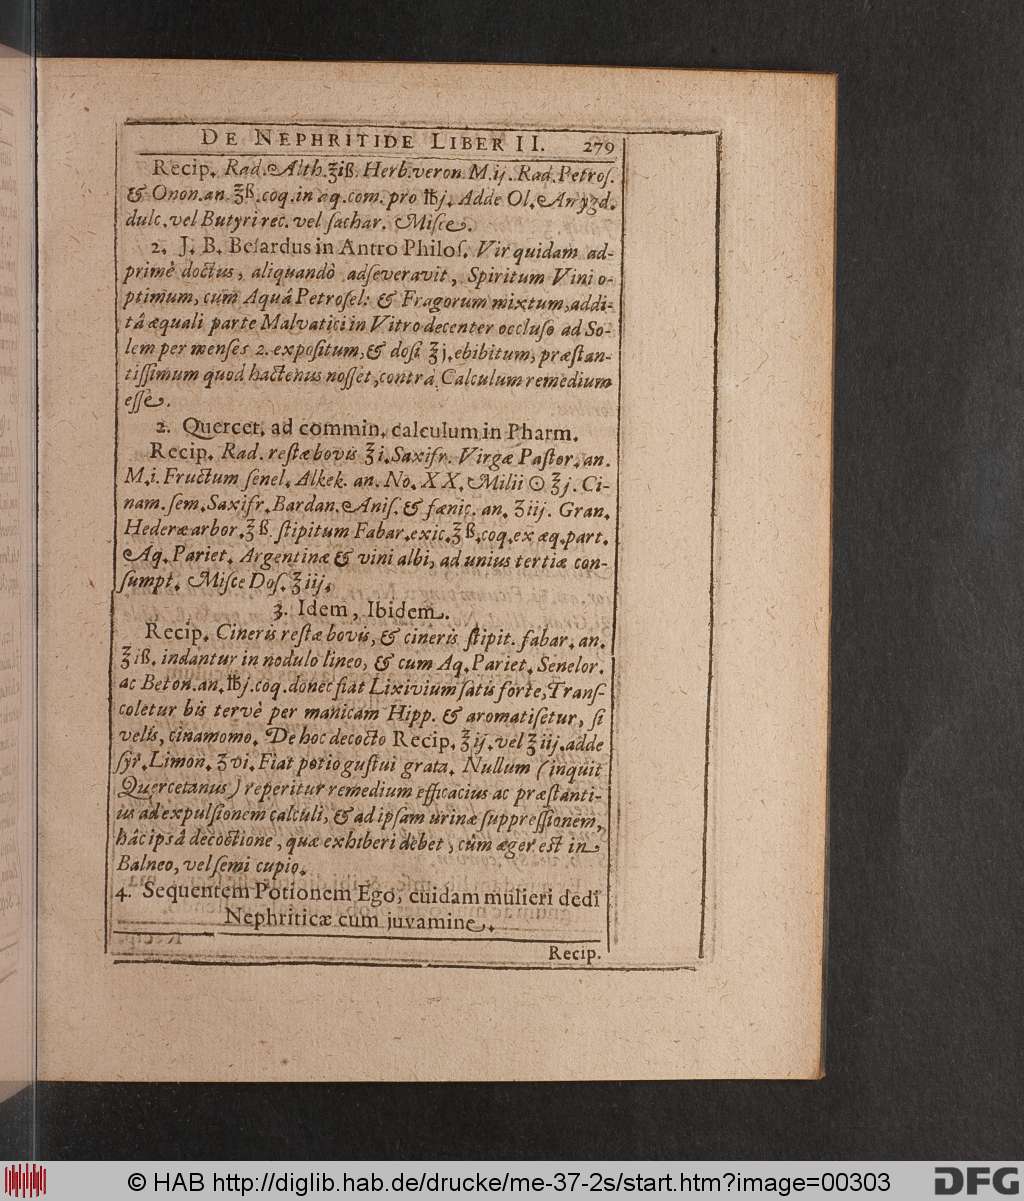 DE NEPHRITIDE LIBER II. 279
Recip. Rad. Alth. ℥iß. Herb. veron. M.ij. Rad. Petros.
& Onon. an. ℥ß. coq. in aq. com. pro ℔j. Adde Ol. Amygd.
dulc. vel Butyri rec. vel sachar. Misce.
2. J. B. Besardus in Antro Philos. Vir quidam ad-
primè doctus, aliquandò adseveravit, Spiritum Vini o-
ptimum, cum Aquâ Petrosel: & Fragorum mixtum, addi-
tâ æquali parte Malvatici in Vitro decenter occluso ad So-
lem per menses 2. expositum, & dosi ℥j. ebibitum, præstan-
tissimum quod hactenus nosset, contra Calculum remedium
esse.
2. Quercet. ad commin. calculum in Pharm.
Recip. Rad. restæ bovis ℥i. Saxifr. Virgæ Pastor. an.
M.i. Fructum senel. Alkek. an. No. XX. Milii ☉ ℥j. Ci-
nam. sem. Saxifr. Bardan. Anis. & fænic. an. ʒiij. Gran.
Hederæ arbor. ℥ß. stipitum Fabar. exic. ℥ß. coq. ex æq. part.
Aq. Pariet. Argentinæ & vini albi, ad unius tertiæ con-
sumpt. Misce Dos. ℥iij.
3. Idem, Ibidem.
Recip. Cineris restæ bovis, & cineris stipit. fabar. an.
℥iß. indantur in nodulo lineo, & cum Aq. Pariet. Senelor.
ac Beton. an. ℔j. coq. donec fiat Lixivium satis forte, Trans-
coletur bis tervè per manicam Hipp. & aromatisetur, si
velis, cinamomo. De hoc decocto Recip. ℥ij. vel ℥iij. adde
syr. Limon. ʒvi. Fiat potio gustui grata. Nullum (inquit
Quercetanus) reperitur remedium efficacius ac præstanti-
us ad expulsionem calculi, & ad ipsam urinæ suppressionem,
hâc ipsâ decoctione, quæ exhiberi debet, cùm æger est in
Balneo, vel semi cupio.
4. Sequentem Potionem Ego, cuidam mulieri dedi
Nephriticæ cum juvamine.
Recip.
© HAB http://diglib.hab.de/drucke/me-37-2s/start.htm?image=00303
DFG